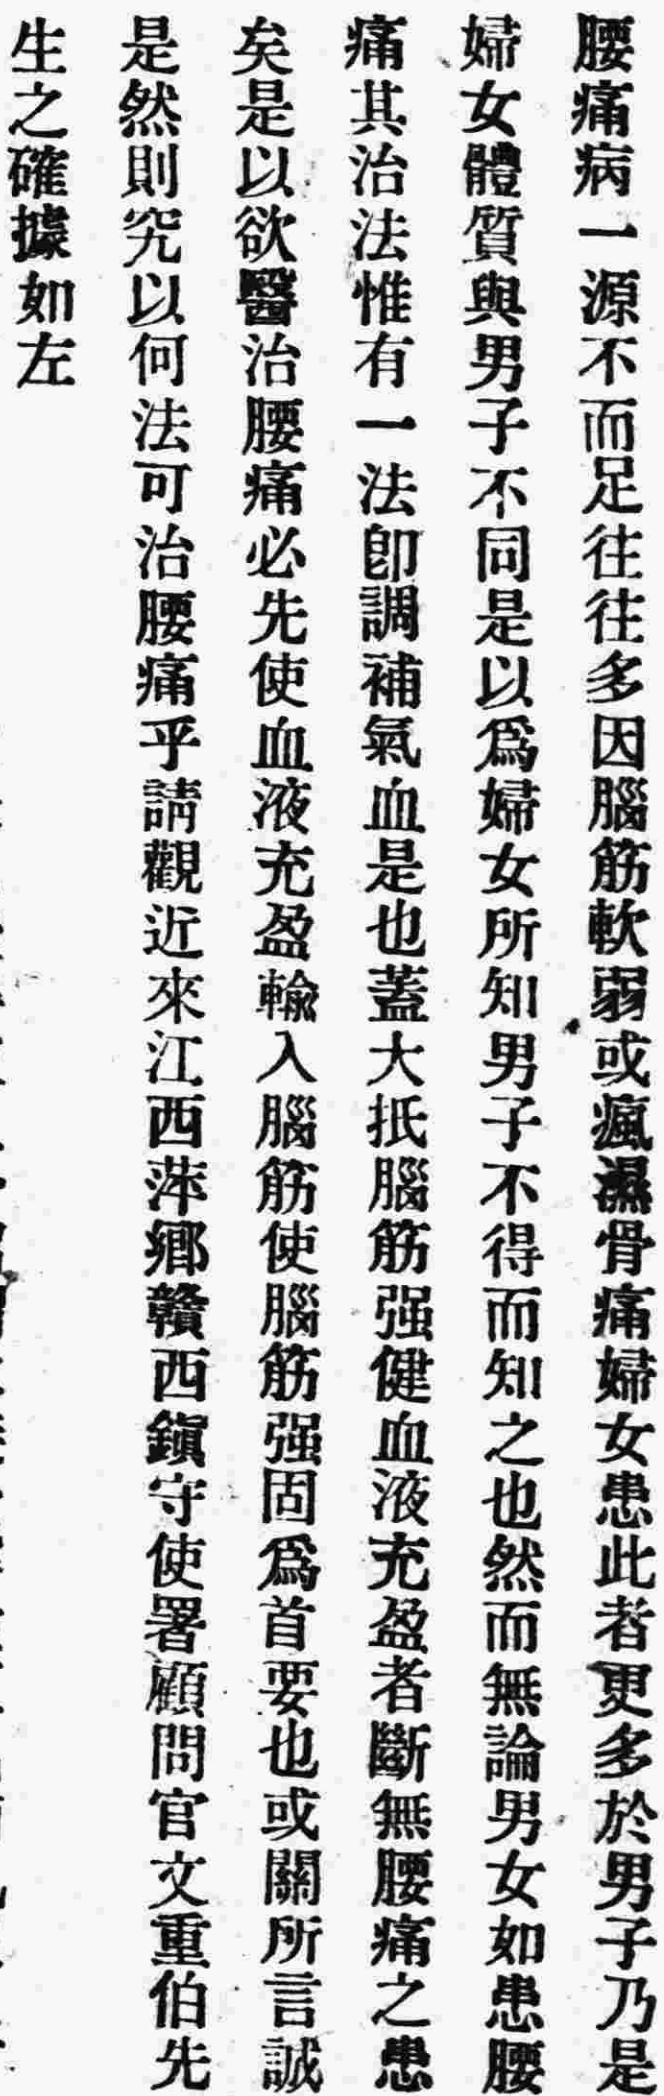 腰痛病一源不而足往往多因腦筋軟弱或瘋濕骨痛婦女患此者更多於男子乃是
婦女體質與男子不同是以爲婦女所知男子不得而知之也然而無論男女如患腰
痛其治法惟有一法卽調補氣血是也蓋大抵腦筋强健血液充盈者斷無腰痛之患
矣是以欲醫治腰痛必先使血液充盈輸入腦筋使腦筋强固爲首要也或關所言誠
是然則究以何法可治腰痛乎請觀近來江西萍鄉贛西鎭守使署顧問官文重伯先
生之確據如左